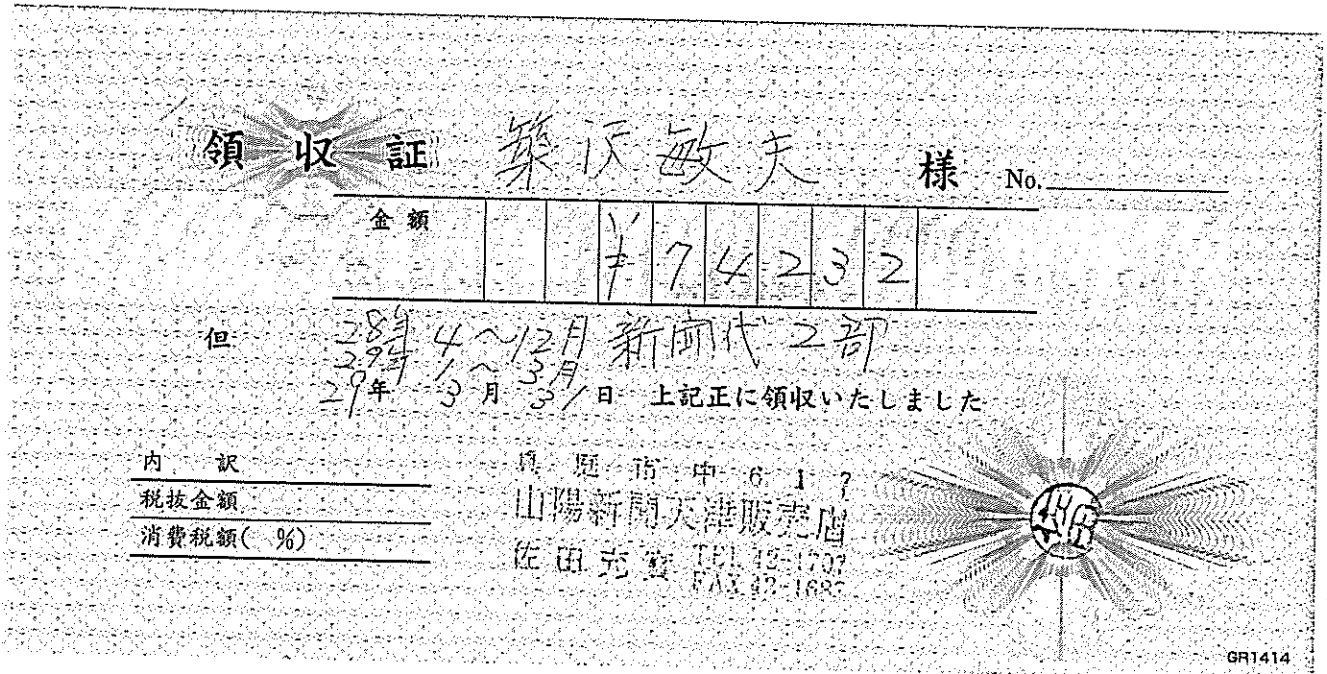 領収証 築沢敏夫 様 No.
金額 ¥74232
但 28年 4~12月 新聞代 2部
29年 1~3月
29年 3月 31日 上記正に領収いたしました
内訳
税抜金額
消費税額( %)
真庭市中617
山陽新聞天津販売店
佐田 TEL 42-1707
FAX 42-1687
GR1414